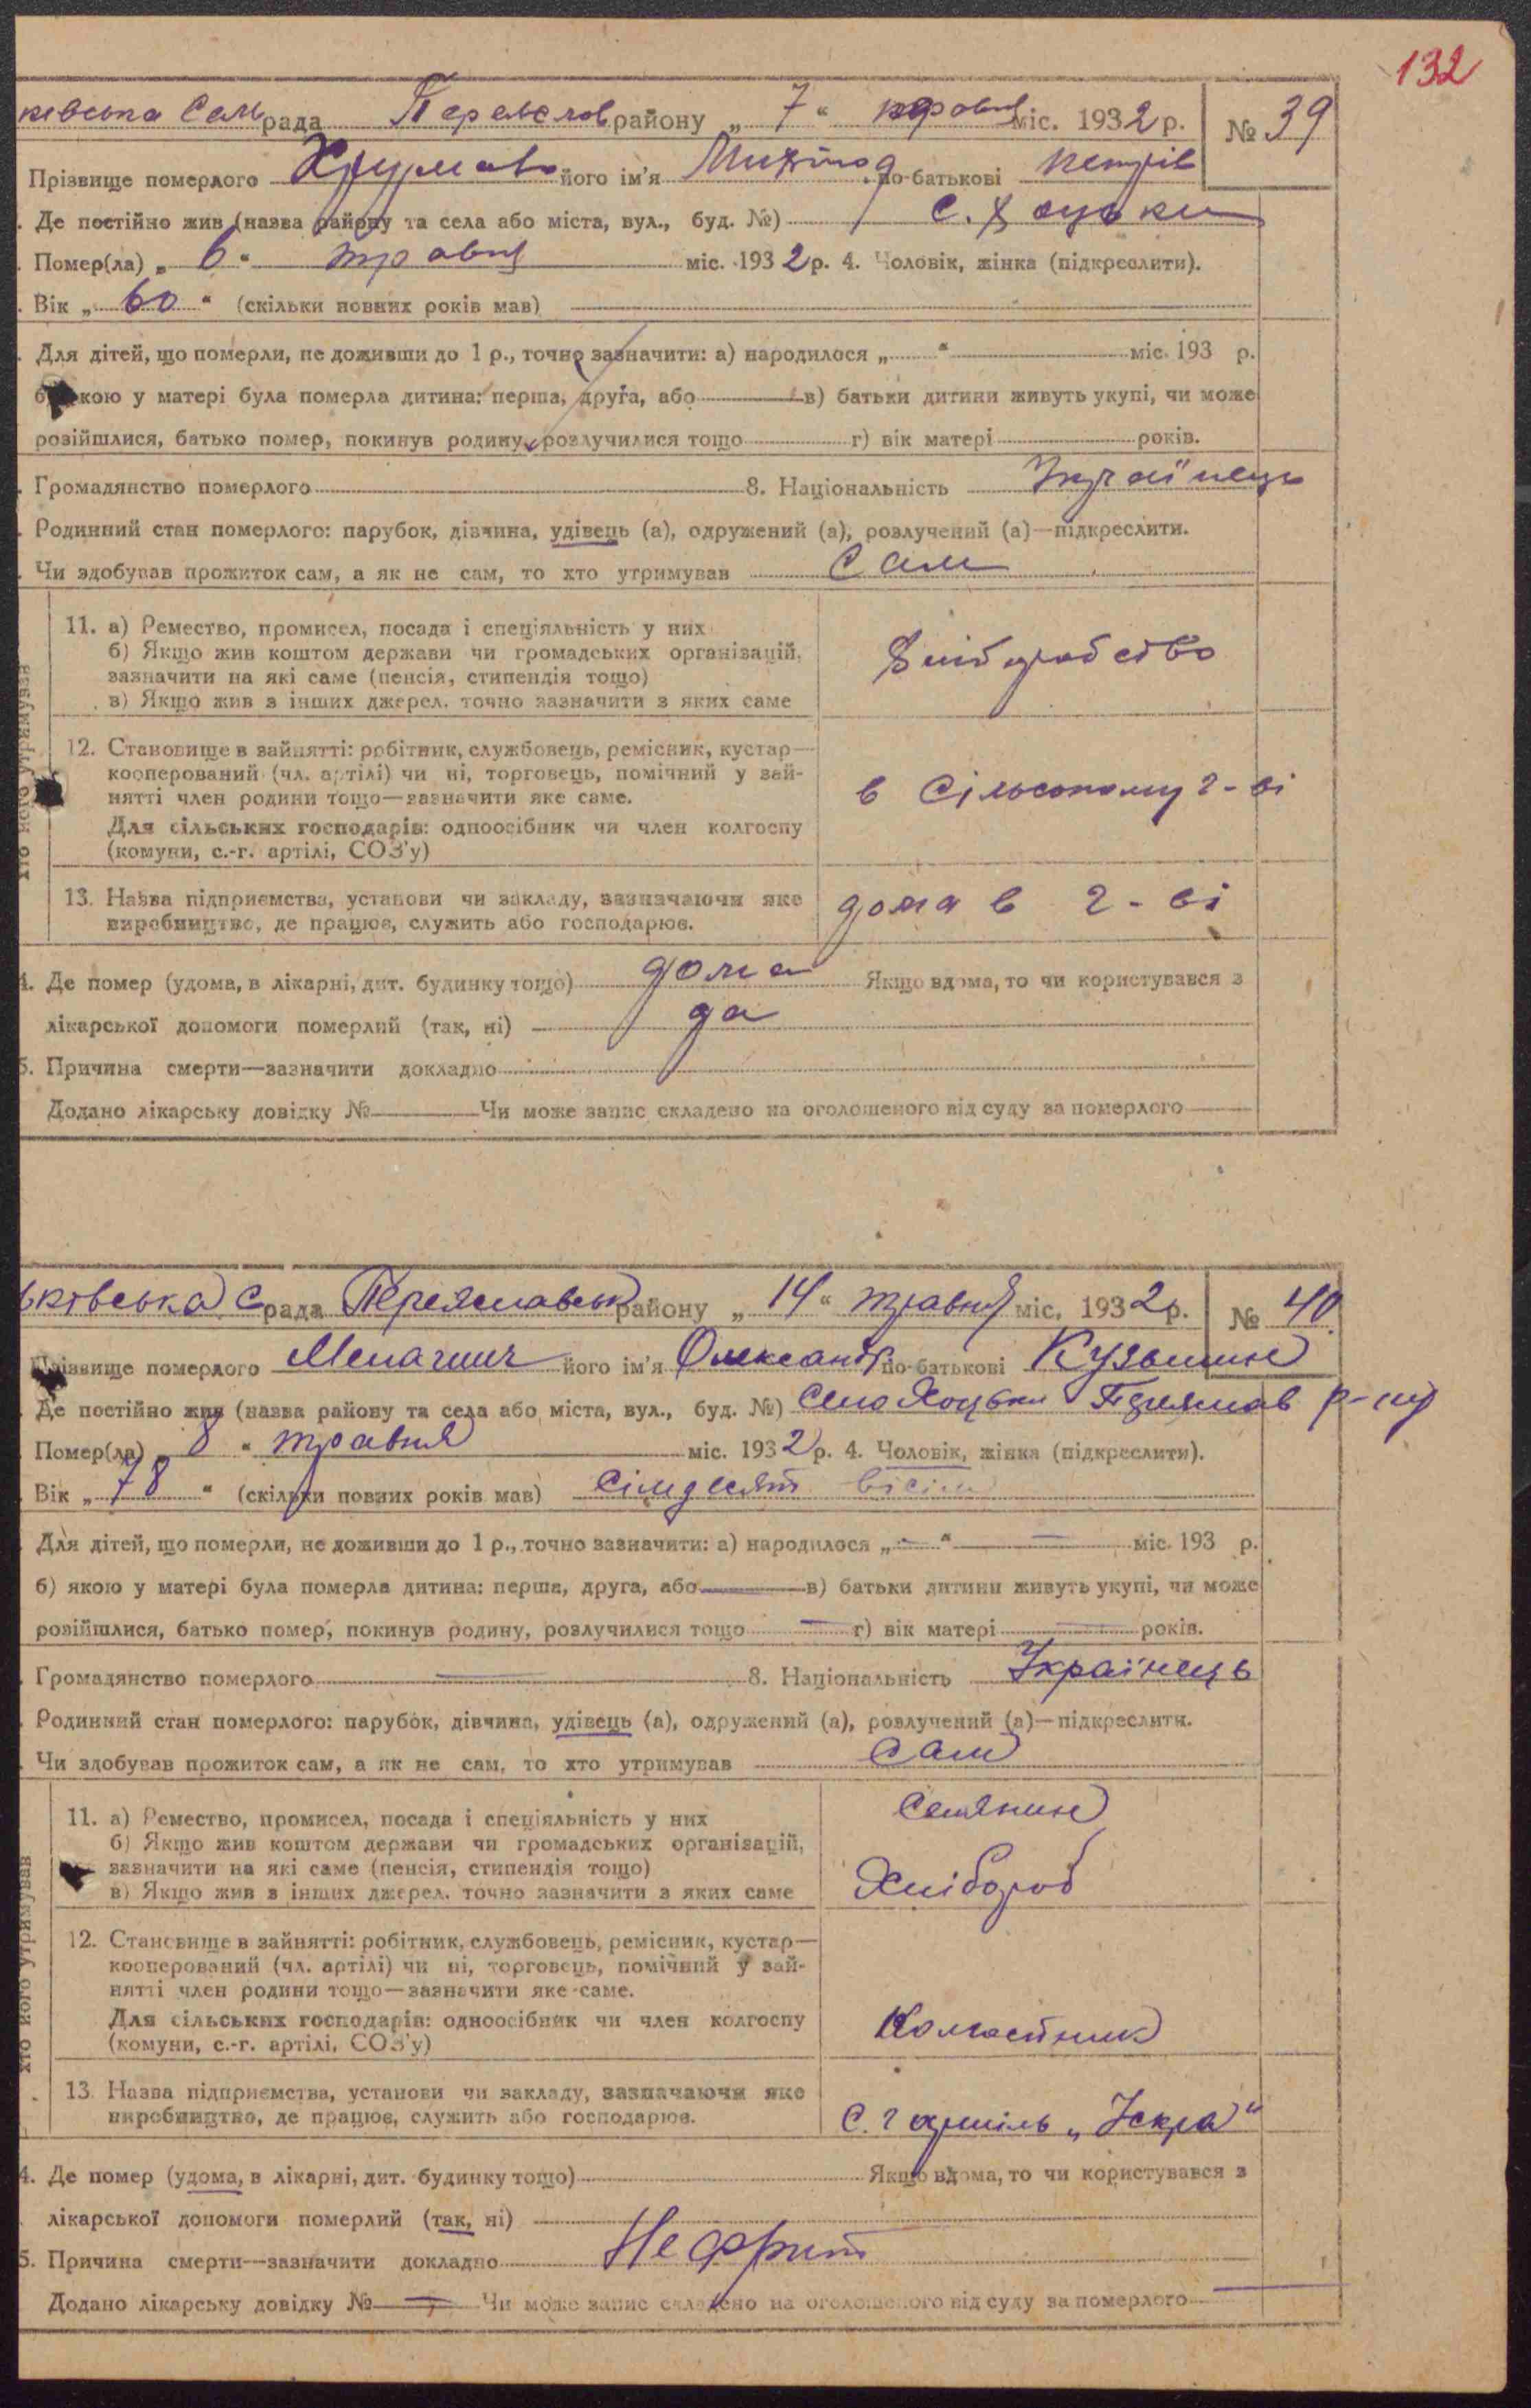 132
ківська Сель рада Переяслав району „ 7 “ травня міс. 1932 р. № 39
Прізвище померлого його ім'я по-батькові Петрів
Де постійно жив (назва району та села або міста, вул., буд. №) с. Хоцьки
Помер(ла) „ 6 “ травня міс. 1932 р. 4. Чоловік, жінка (підкреслити).
Вік „ 60 “ (скільки повних років мав)
Для дітей, що померли, не доживши до 1 р., точно зазначити: а) народилося „ “ міс. 193 р.
б) якою у матері була померла дитина: перша, друга, або в) батьки дитини живуть укупі, чи може
розійшлися, батько помер, покинув родину, розлучилися тощо г) вік матері років.
Громадянство померлого 8. Національність Українець
Родинний стан померлого: парубок, дівчина, удівець (а), одружений (а), розлучений (а)—підкреслити.
Чи здобував прожиток сам, а як не сам, то хто утримував Сам
хто його утримував
11. а) Ремество, промисел, посада і спеціяльність у них
б) Якщо жив коштом держави чи громадських організацій,
зазначити на які саме (пенсія, стипендія тощо)
в) Якщо жив з інших джерел, точно зазначити з яких саме
Хліборобство
12. Становище в зайнятті: робітник, службовець, ремісник, кустар—
кооперований (чл. артілі) чи ні, торговець, помічний у зай-
нятті член родини тощо—зазначити яке саме.
Для сільських господарів: одноосібник чи член колгоспу
(комуни, с.-г. артілі, СОЗ'у)
в Сільському г-ві
13. Назва підприємства, установи чи закладу, зазначаючи яке
виробництво, де працює, служить або господарює.
дома в г-ві
4. Де помер (удома, в лікарні, дит. будинку тощо) дома Якщо вдома, то чи користувався з
лікарської допомоги померлий (так, ні) да
5. Причина смерти—зазначити докладно
Додано лікарську довідку № Чи може запис складено на оголошеного від суду за померлого
ьківська С рада Переяславськ району „ 14 “ травня міс. 1932 р. № 40
Прізвище померлого його ім'я Олександр по-батькові Кузьмин
Де постійно жив (назва району та села або міста, вул., буд. №) село Хоцьки Переяслав р-ну
Помер(ла) „ 8 “ травня міс. 1932 р. 4. Чоловік, жінка (підкреслити).
Вік „ 78 “ (скільки повних років мав) сімдесят вісім
Для дітей, що померли, не доживши до 1 р., точно зазначити: а) народилося „ — “ — міс. 193 р.
б) якою у матері була померла дитина: перша, друга, або — в) батьки дитини живуть укупі, чи може
розійшлися, батько помер, покинув родину, розлучилися тощо — г) вік матері — років.
Громадянство померлого — 8. Національність Українець
Родинний стан померлого: парубок, дівчина, удівець (а), одружений (а), розлучений (а)—підкреслити.
Чи здобував прожиток сам, а як не сам, то хто утримував сам
хто його утримував
11. а) Ремество, промисел, посада і спеціяльність у них
б) Якщо жив коштом держави чи громадських організацій,
зазначити на які саме (пенсія, стипендія тощо)
в) Якщо жив з інших джерел, точно зазначити з яких саме
Селянин
Хлібороб
12. Становище в зайнятті: робітник, службовець, ремісник, кустар—
кооперований (чл. артілі) чи ні, торговець, помічний у зай-
нятті член родини тощо—зазначити яке саме.
Для сільських господарів: одноосібник чи член колгоспу
(комуни, с.-г. артілі, СОЗ'у)
Колгоспник
13. Назва підприємства, установи чи закладу, зазначаючи яке
виробництво, де працює, служить або господарює.
С. г артіль „Іскра“
4. Де помер (удома, в лікарні, дит. будинку тощо) Якщо вдома, то чи користувався з
лікарської допомоги померлий (так, ні)
5. Причина смерти—зазначити докладно Нефрит
Додано лікарську довідку № — Чи може запис складено на оголошеного від суду за померлого —